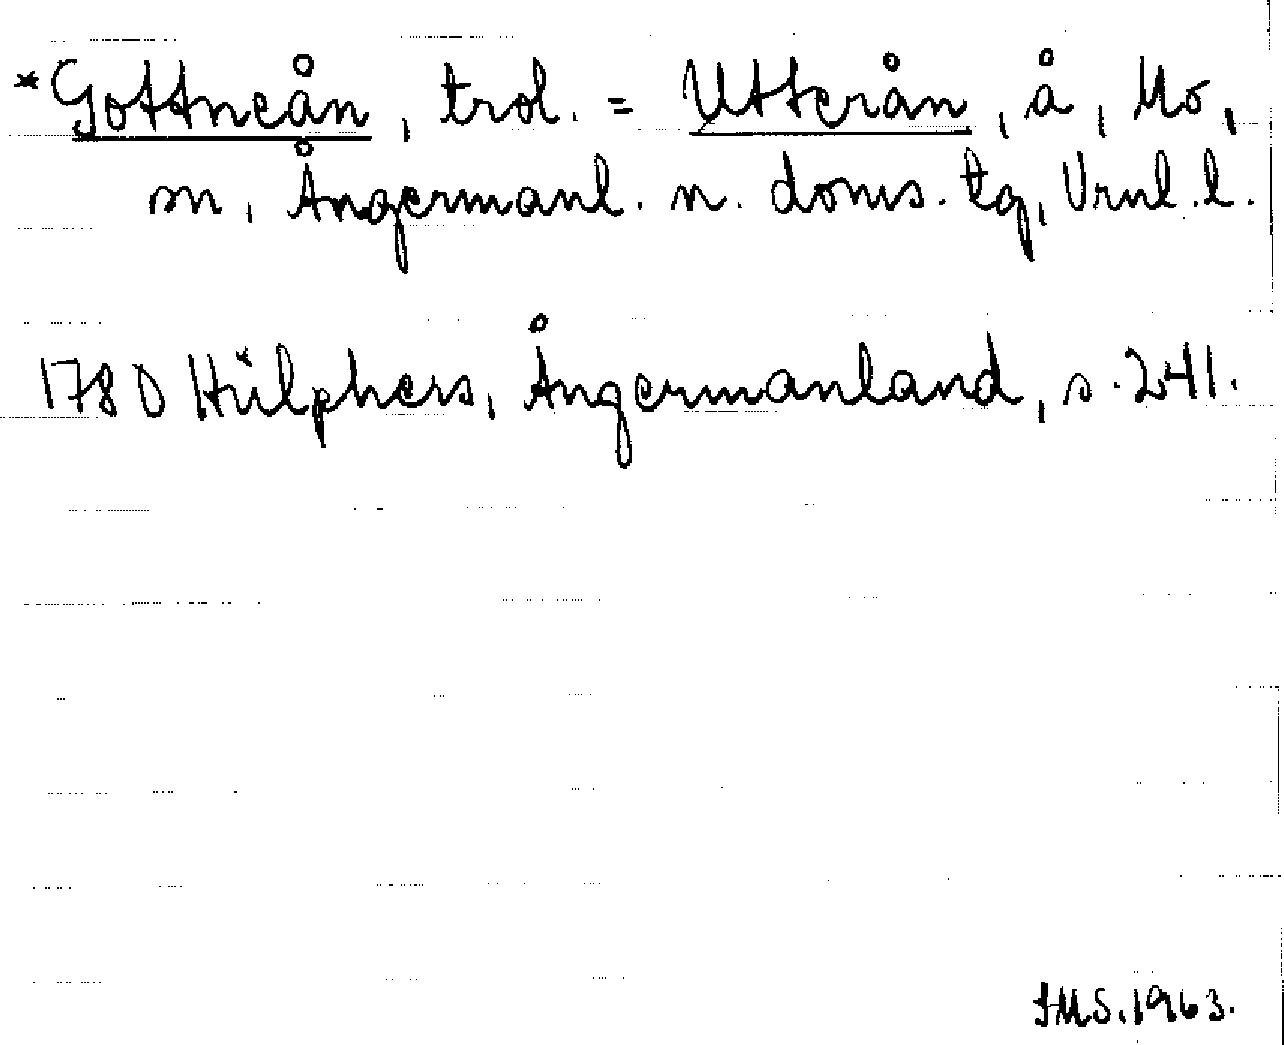 *Gottneån, trol. = Utterån, å, Mo,
sn, Ångermanl. n. doms. tg, Vrnl. l.
1780 Hülphers, Ångermanland, s. 241.
IMS. 1963.